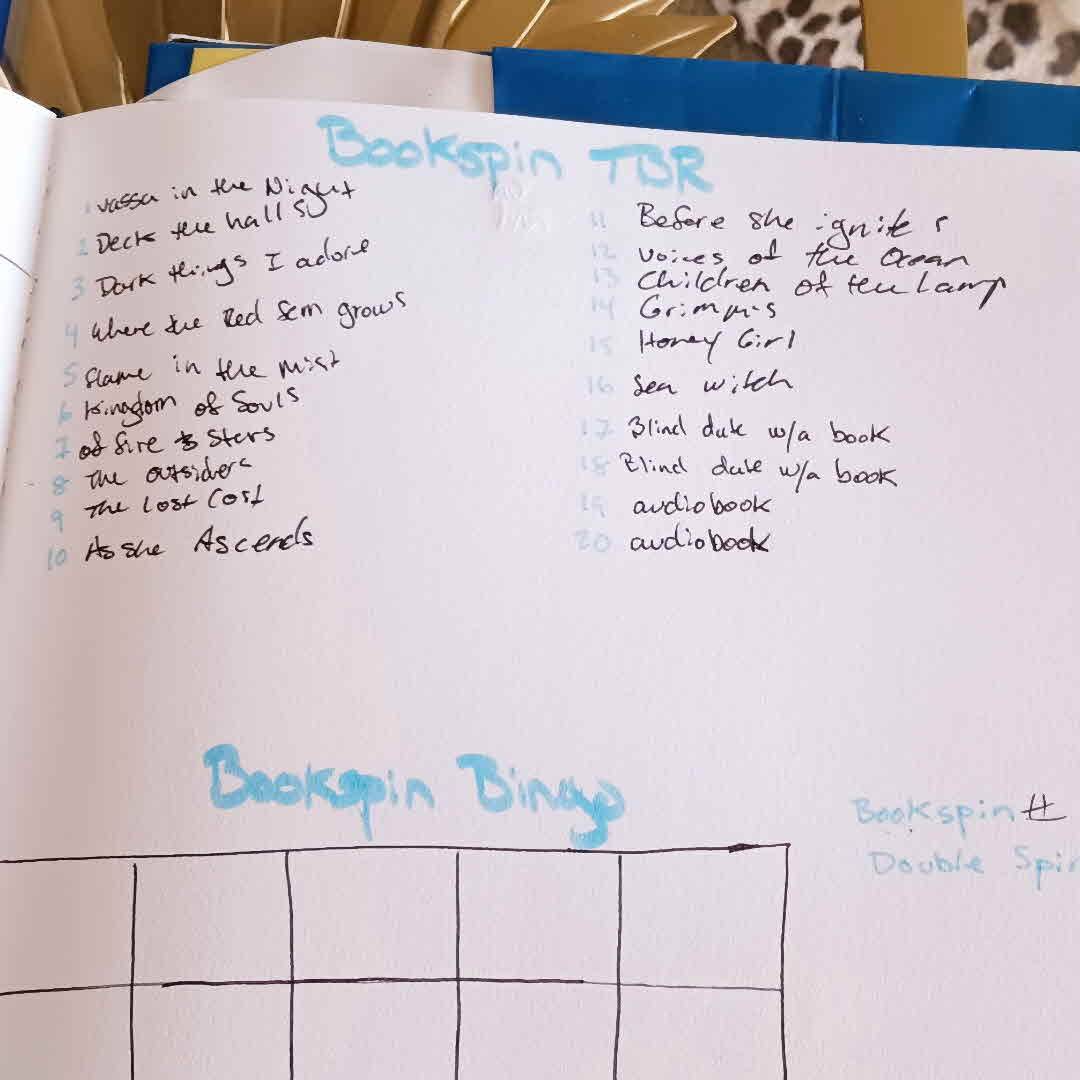 Bookspin TBR
1 Vassa in the Night
2 Deck the halls
3 Dark things I adore
4 Where the Red Fern grows
5 flame in the mist
6 Kingdom of Souls
7 of fire & Stars
8 The outsiders
9 The Lost Cost
10 As she Ascends
11 Before she ignites
12 Voices of the Ocean
13 Children of the Lamp
14 Grimm's
15 Honey Girl
16 Sea witch
17 Blind date w/a book
18 Blind date w/a book
19 audiobook
20 audiobook
Bookspin Bingo
Bookspin #
Double Spin